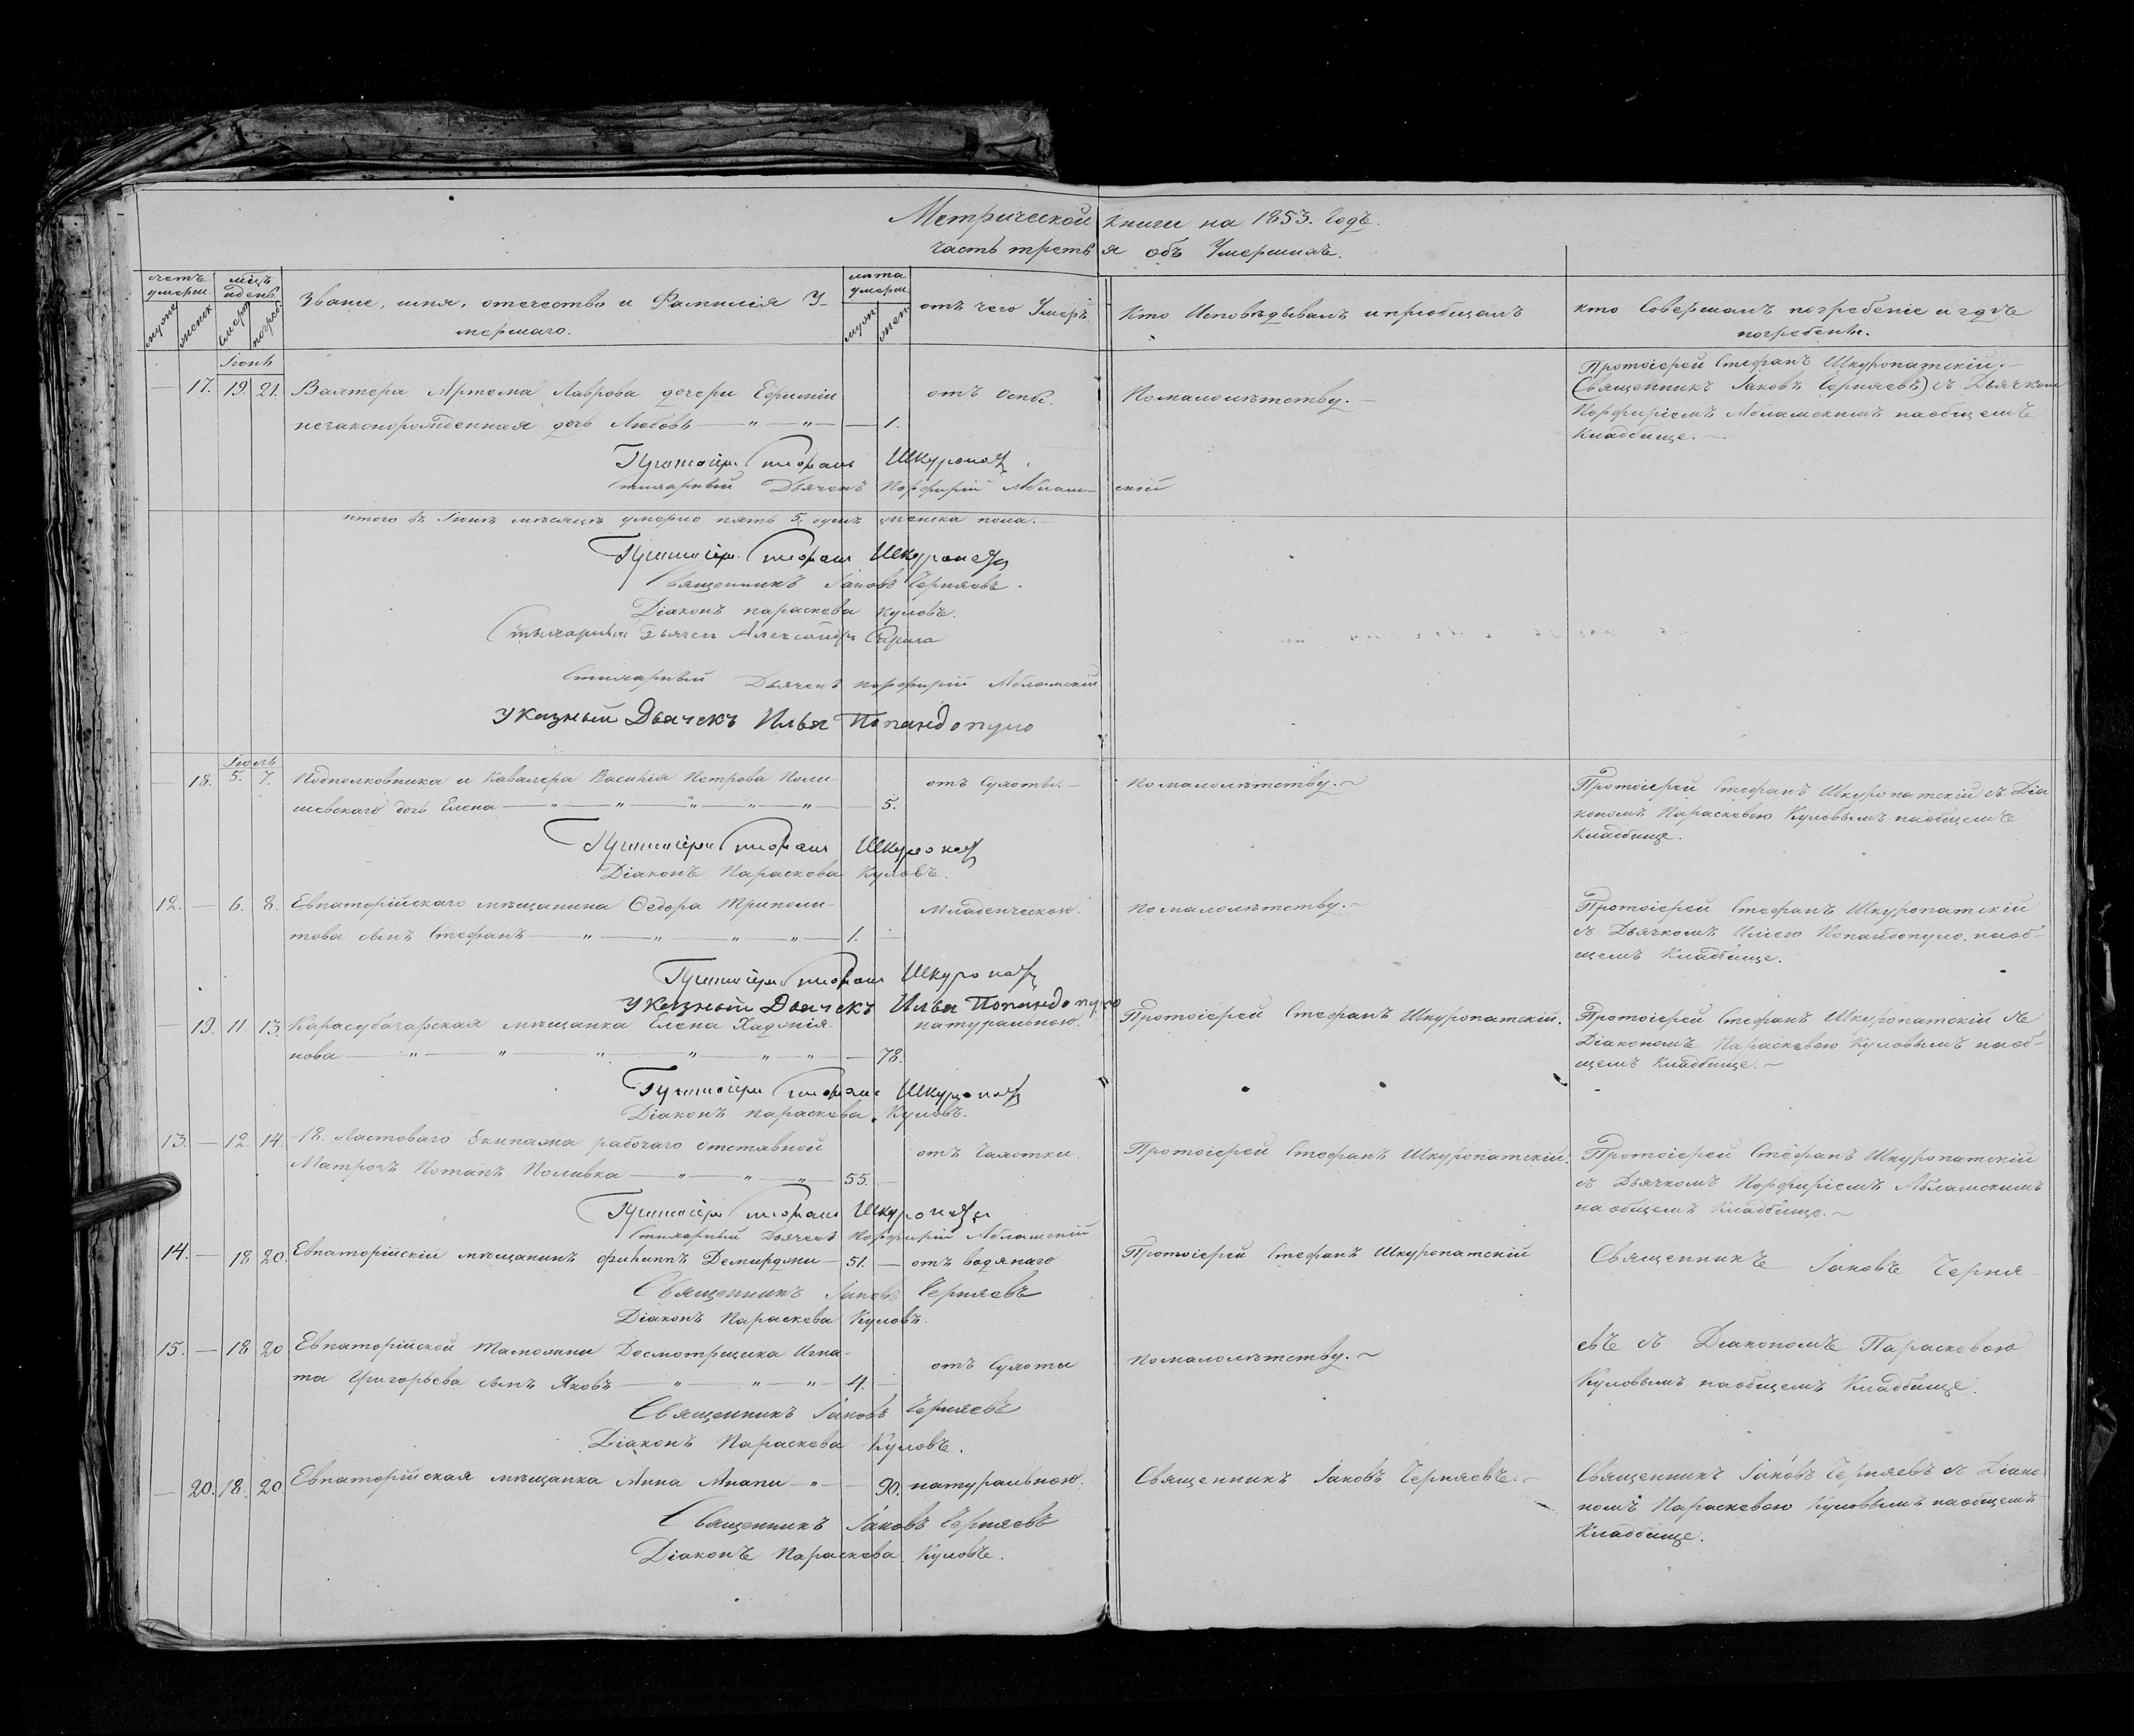 Метрической книги на 1853. годъ.
часть третья объ Умершихъ.
счетъ умерш.
мѣцъ и день
Званіе, имя, отечество и Фамилія Умершаго.
лѣта умерш.
отъ чего Умеръ
Кто Исповѣдывалъ и пріобщалъ
кто Совершалъ погребеніе и гдѣ погребены.
Іюнь
— 17. 19. 21. Артема Лаврова дочери Ефиміи
незаконорожденная дочь Любовь — " — " — — 1.
отъ Оспы.
По малолѣтству. —
Протоіерей Стефанъ Шкуропатскій.
(Священникъ Іаковъ Черняевъ) съ Дьячкомъ
Порфиріемъ Абламскимъ на общемъ
Кладбище. —
Протоіер. Стефанъ Шкуропат
Стихарный Дьячекъ Порфирій Абламскій
итого въ Іюнѣ мѣсяцѣ умерло пять 5. душъ женска пола. —
Протоіер. Стефанъ Шкуропат
Священникъ Іаковъ Черняевъ.
Діаконъ Параскева Куловъ.
Стихарный Дьячек Александръ
Стихарный Дьячекъ порфирій Абламскій
Указный Дьячекъ Илья Попандопуло
Іюль
— 18. 5. 7. Подполковника и Кавалера Василія Петрова Поли-
шевскаго дочь Елена — " — " — " — " — " — — 5.
отъ Сухоты. —
По малолѣтству. ~
Протоіерей Стефанъ Шкуропатскій съ Діа
кономъ Параскевою Куловымъ на общемъ
Кладбище.
Протоіерей Стефанъ Шкуропат
Діаконъ Параскева Куловъ.
12. — 6. 8. Евпаторійскаго мѣщанина Ѳедора Триполи-
това сынъ Стефанъ — " — " — " — " — 1.
Младенческою.
По малолѣтству. ~
Протоіерей Стефанъ Шкуропатскій
съ Дьячкомъ Иліею Попандопуло. на об-
щемъ Кладбище.
Протоіерей Стефанъ Шкуропат
Указный Дьячекъ Илья Попандопуло
— 19. 11. 13. Карасубазарская мѣщанка Елена Хаджія-
нова — " — " — " — " — " — " — — 78.
натуральною.
Протоіерей Стефанъ Шкуропатскій.
Протоіерей Стефанъ Шкуропатскій съ
Діакономъ Параскевою Куловымъ на об-
щемъ Кладбище. ~
Протоіерей Стефанъ Шкуропат
Діаконъ параскева Куловъ.
13. — 12. 14. 18. Ластоваго Экипажа рабочаго отставной
Матрозъ Потапъ Поливка — " — " — " — 55. —
отъ Чахотки.
Протоіерей Стефанъ Шкуропатскій.
Протоіерей Стефанъ Шкуропатскій
съ Дьячкомъ Порфиріемъ Абламскимъ
на общемъ Кладбище. ~
Протоіерей Стефанъ Шкуропат
Стихарный Дьячекъ Порфирій Абламскій
14. — 18 20. Евпаторійскій мѣщанинъ филиппъ Демирджи — 51. — отъ водянаго
Протоіерей Стефанъ Шкуропатскій
Священникъ Іаковъ Черня-
Священникъ Іаковъ Черняевъ
Діаконъ Параскева Куловъ.
15. — 18 20 Евпаторійской Таможни Досмотрщика Игна-
та Григорьева сынъ Яковъ — " — " — " — 4. —
отъ Сухоты
По малолѣтству. ~
евъ съ Діакономъ Параскевою
Куловымъ на общемъ Кладбище.
Священникъ Іаковъ Черняевъ
Діаконъ Параскева Куловъ.
— 20. 18. 20. Евпаторійская мѣщанка Анна — " — — 90. натуральною.
Священникъ Іаковъ Черняевъ. —
Священникъ Іаковъ Черняевъ съ Діако
номъ Параскевою Куловымъ на общемъ
Кладбище.
Священникъ Іаковъ Черняевъ
Діаконъ Параскева Куловъ.